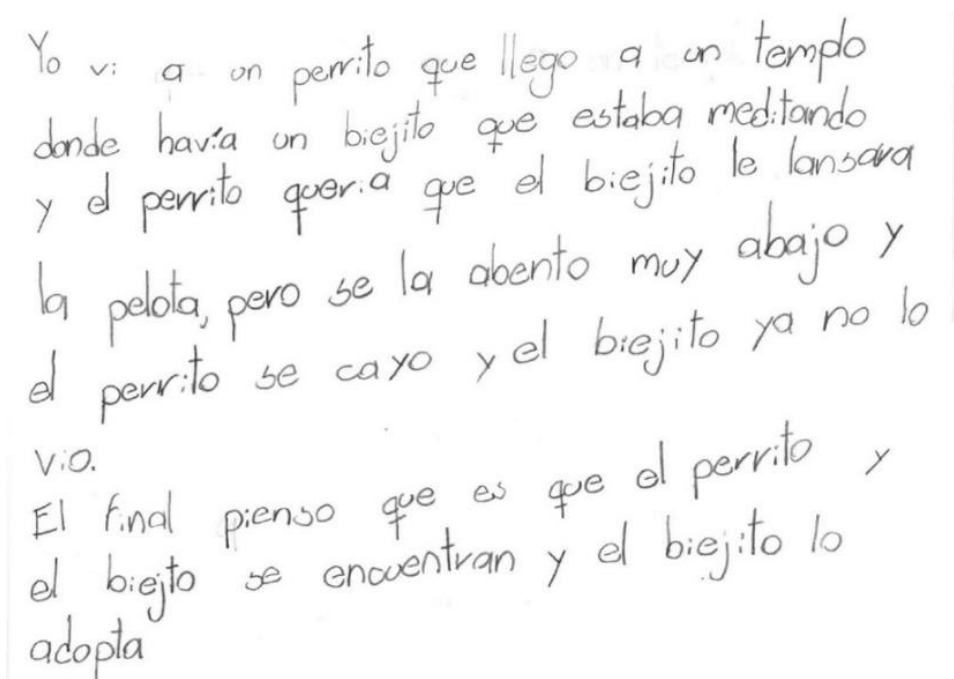 Yo vi a un perrito que llego a un tempo
donde havia un biejito que estaba meditando
y el perrito queria que el biejito le lansara
la pelota, pero se la abento muy abajo y
el perrito se cayo y el biejito ya no lo
vio.
El final pienso que es que el perrito y
el biejto se encuentran y el biejito lo
adopta